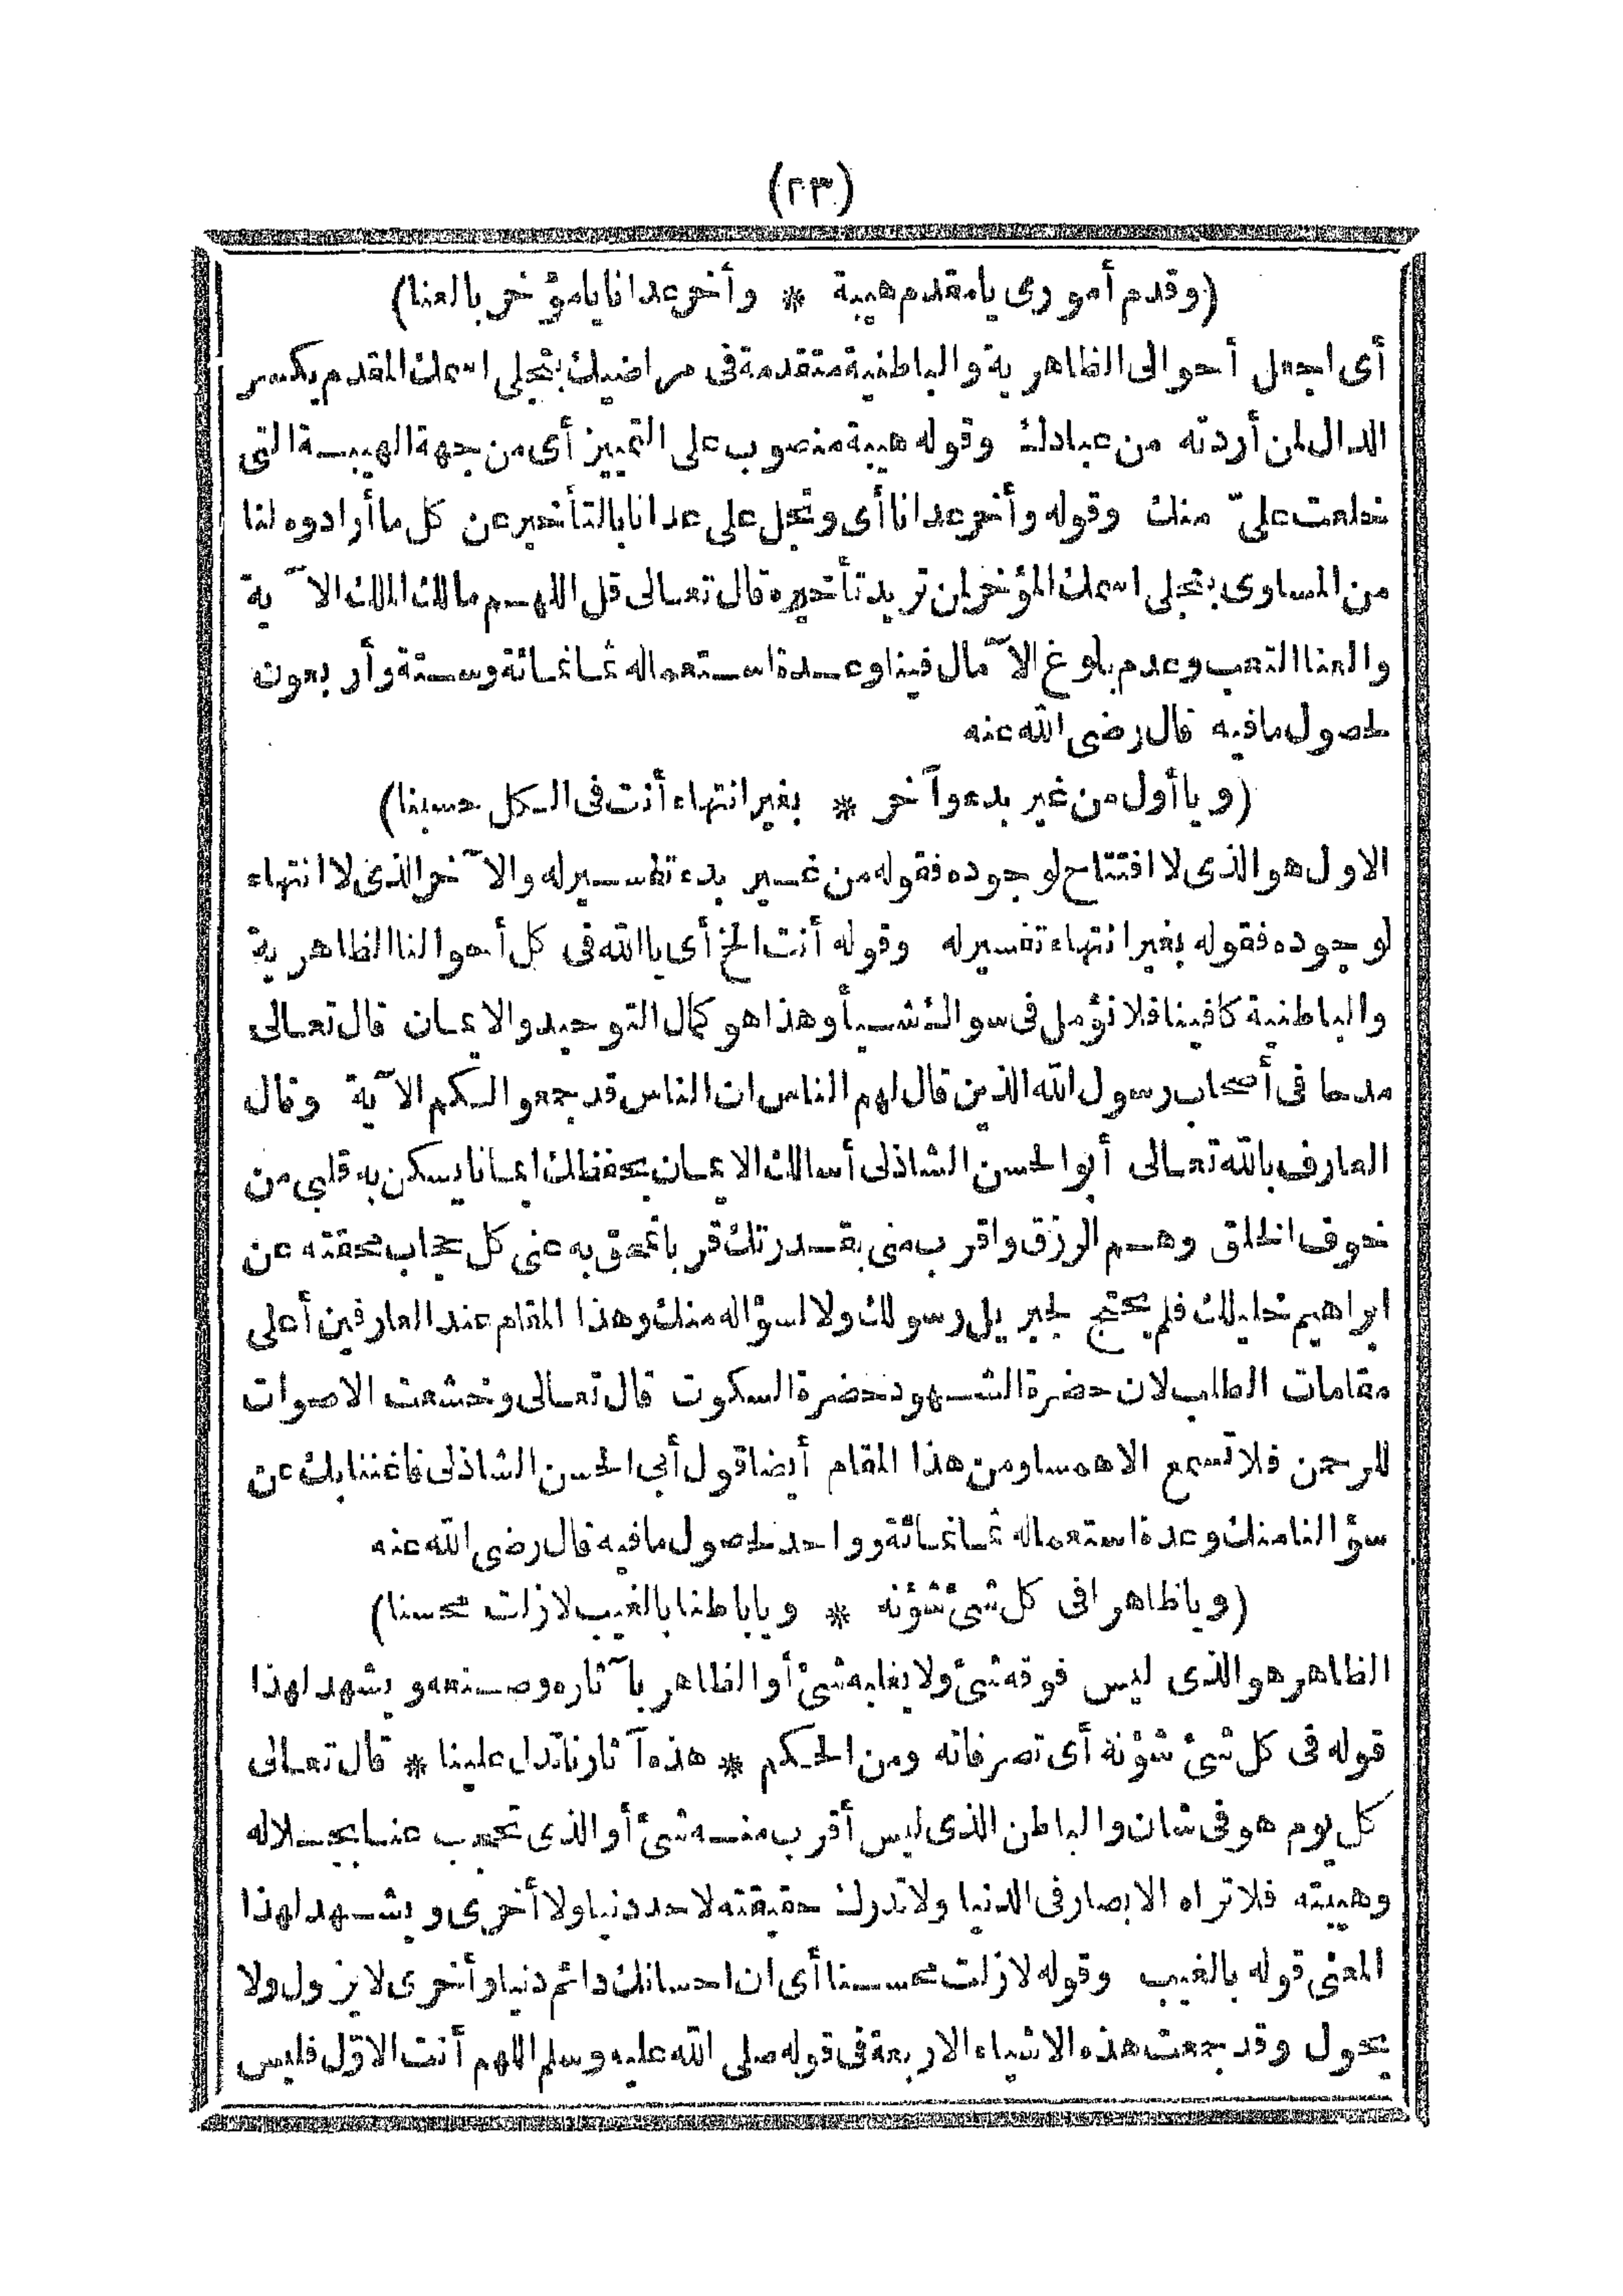 (٢٣)
(وقدم أموري يا مقدم هيبة * وأخر عدانا يا مؤخر بالعنا)
أى اجعل أحوالى الظاهرية والباطنية متقدمة فى مراضيك بتجلى اسمك المقدم بكسر
الدال لمن أردته من عبادك وقوله هيبة منصوب على التمييز أى من جهة الهيبة التى
خلعت علىّ منك وقوله وأخر عدانا أى وتجل على عدانا بالتأخير عن كل ما أرادوه لنا
من المساوى بتجلى اسمك المؤخر لمن تريد تأخيره قال تعالى قل اللهم مالك الملك الآية
والعنا التعب وعدم بلوغ الآمال فينا وعدة استعماله ثمانمائة وستة وأربعون
لحصول ما فيه قال رضى الله عنه
(ويا أول من غير بدء وآخر * بغير انتهاء أنت فى الكل حسبنا)
الاول هو الذى لا افتتاح لوجوده فقوله من غير بدء تفسير له والآخر الذى لا انتهاء
لوجوده فقوله بغير انتهاء تفسير له وقوله أنت الخ أى يا الله فى كل أحوالنا الظاهرية
والباطنية كافينا فلا نؤمل فى سواك شيأ وهذا هو كمال التوحيد والايمان قال تعالى
مدحا فى أصحاب رسول الله الذين قال لهم الناس ان الناس قد جمعوا لكم الآية وقال
العارف بالله تعالى أبو الحسن الشاذلى أسالك الايمان بحفظك ايمانا يسكن به قلبى من
خوف الخلق وهم الرزق واقرب منى بقدرتك قربا تمحق به عنى كل حجاب محقته عن
ابراهيم خليلك فلم يحتج لجبريل رسولك ولا لسؤاله منك وهذا المقام عند العارفين أعلى
مقامات الطلب لان حضرة الشهود حضرة السكوت قال تعالى وخشعت الاصوات
للرحمن فلا تسمع الا همسا ومن هذا المقام أيضا قول أبى الحسن الشاذلى فاغننا بك عن
سؤالنا منك وعدة استعماله ثمانمائة وواحد لحصول ما فيه قال رضى الله عنه
(ويا ظاهرا فى كل شئ شؤنه * ويا باطنا بالغيب لا زلت محسنا)
الظاهر هو الذى ليس فوقه شئ ولا يغلبه شئ أو الظاهر بآثاره وصنعه ويشهد لهذا
قوله فى كل شئ شؤنة أى تصرفاته ومن الحكم * هذه آثارنا تدل علينا * قال تعالى
كل يوم هو فى شان والباطن الذى ليس أقرب منه شئ أو الذى تحجب عنا بجلاله
وهيبته فلا تراه الابصار فى الدنيا ولا تدرك حقيقته لاحد دنيا ولا أخرى ويشهد لهذا
المعنى قوله بالغيب وقوله لا زلت محسنا أى ان احسانك دائم دنيا وأخرى لا يزول ولا
يحول وقد جمعت هذه الاشياء الاربعة فى قوله صلى الله عليه وسلم اللهم أنت الاوّل فليس